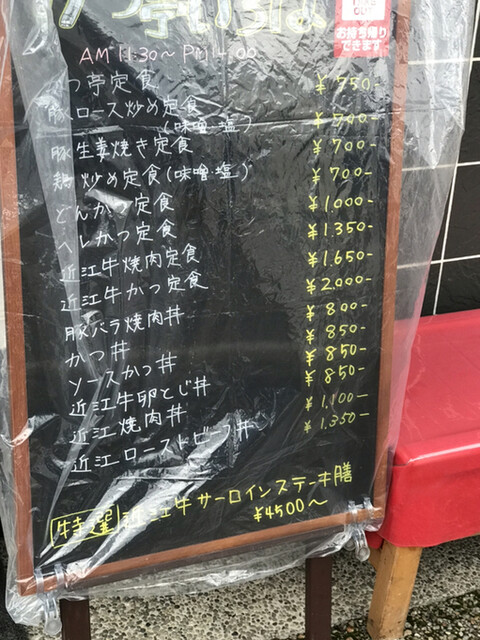 AM 11:30～PM
お持ち帰り
できます
つ亭定食 ¥750-
豚ロース炒め定食
(味噌・塩)
豚生姜焼き定食 ¥700-
鶏炒め定食(味噌・塩) ¥700-
とんかつ定食 ¥1.000-
ヘレかつ定食 ¥1.350-
近江牛焼肉定食 ¥1.650-
近江牛かつ定食 ¥2.000-
豚バラ焼肉丼 ¥800-
かつ丼 ¥850-
ソースかつ丼 ¥850-
近江牛卵とじ丼 ¥850-
近江焼肉丼 ¥1.100-
近江ローストビーフ丼 ¥1.350-
特選 近江牛サーロインステーキ膳
¥4500～